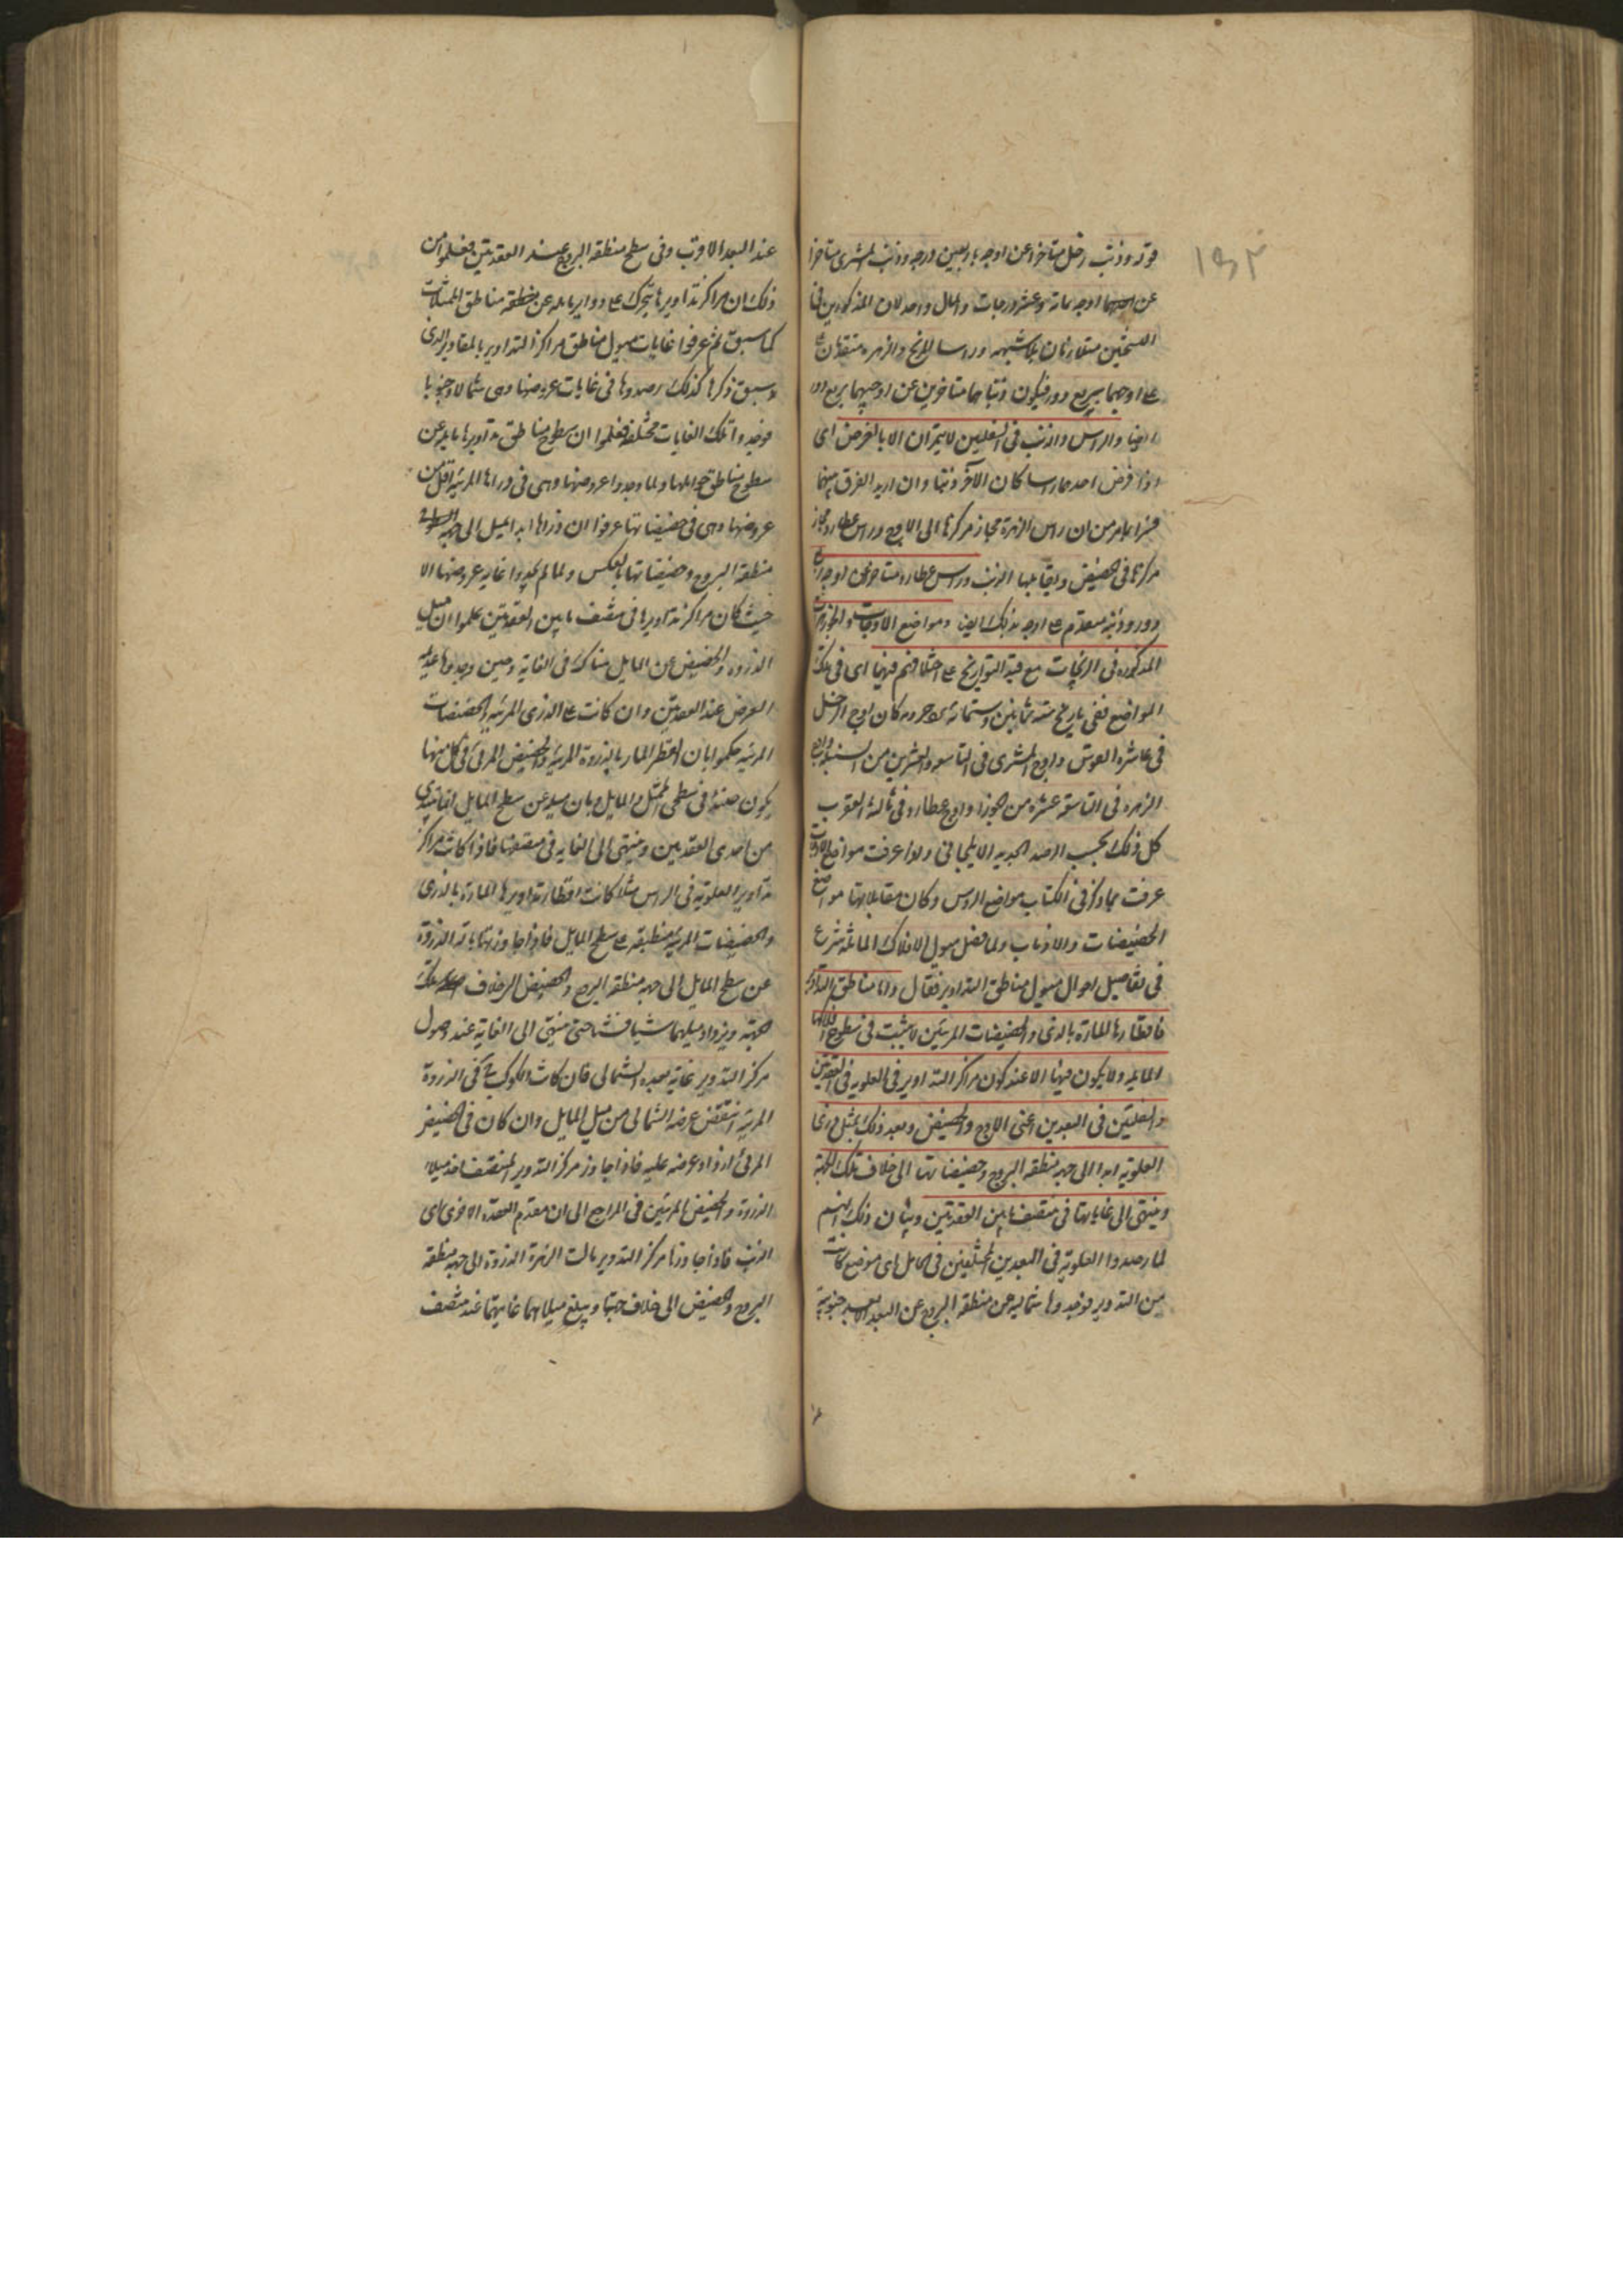 ١٥٢
فوته وذنب زحل متاخرا عن اوجه باربعين درجه وذنب المشترى متاخرا
عن اوجه بمائة وعشر درجات والمال واحد لان المذكورين فى
النسختين متقاربان بلا شبهه وراسا المريخ والزهره متقدمان على
على اوجيهما بربع دور فيكون ذنباهما متاخرين عن اوجيهما بربع دور
ايضا والراس والذنب فى السفليين لا يتميزان الا بالفرض اى
اذا فرض احدهما راسا كان الآخر ذنبا وان اريد الفرق بينهما
فبما مر من ان راس الزهرة مجاز مركزها الى الاوج وراس عطارد مجاز
مركزه فى الحضيض ويقابلها الذنب وراس عطارد متاخر عن اوجه بربع
دور وذنبه متقدم على اوجه بذلك ايضا ومواضع الاوجات والجوزهرات
المذكوره فى الزيجات مع قيد التواريخ على اختلافهم فيها اى فى تلك
المواضع ففى تاريخ سنه ثمانين وستمائة يزدجرديه كان اوج الزحل
فى عاشرة القوس واوج المشترى فى التاسع والعشرين من السنبله واوج
الزهره فى التاسعة عشرة من الجوزا واوج عطارد فى ثالثة العقرب
كل ذلك بحسب الرصد الجديد الايلخانى ولما عرفت مواضع الاوجات
عرفت بما ذكر فى الكتاب مواضع الروس وكان مقابلاتها مواضع
الحضيضات والاذناب ولما فصل ميول الافلاك المائله شرع
فى تفاصيل احوال ميول مناطق التداوير فقال واما مناطق التداوير
فاقطارها المارة بالذرى والحضيضات المرئيين لا يثبت فى سطوح افلاكها
المايله ولا يكون فيها الا عند كون مراكز التداوير فى العلويه فى العقدتين
والسفليتين فى البعدين اعنى الاوج والحضيض وبعد ذلك يميل ذرى
العلويه ابدا الى جهه منطقه البروج وحضيضاتها الى خلاف تلك الجهة
وينتهى الى غاياتها فى منتصف ما بين العقدتين وبيان ذلك انهم
لما رصدوا العلويه فى البعدين المختلفين فى الحامل فى اى موضع كانت
من التدوير فوجدوها شماليه عن منطقه البروج عند البعد الابعد جنوبية
عند البعد الاقرب وفى سطح منطقه البروج عند العقدتين فعلموا من
ذلك ان مراكز تداويرها تتحرك على دواير مايله عن منطقه مناطق الممثلات
كما سبق ثم عرفوا غايات ميول مناطق مراكز التداوير بالمقادير التى
سبق ذكرها كذلك رصدوها فى غايات عروضها وهى شمالا وجنوبا
فوجدوا تلك الغايات مختلفة فعلموا ان سطوح مناطق تداويرها مايله عن
سطوح مناطق حواملها ولما وجدوا عروضها وهى فى ذراها المرئيه اقل من
عروضها وهى فى حضيضاتها عرفوا ان ذراها ابدا تميل الى جهة
منطقه البروج وحضيضاتها بالعكس ولما لم يجدوا غاية عروضها الا
حيث كان مراكز تداويرها فى منتصف ما بين العقدتين علموا ان ميل
الذروه والحضيض عن المايل هناك فى الغاية وحين وجدوها عديمه
العرض عند العقدتين وان كانت على الذرى المرئيه والحضيضات
المرئيه حكموا بان القطر المار بالذروة المرئيه والحضيض المرئى فى كل منها
يكون هناك فى سطحى الممثل والمايل وبان ميله عن سطح المايل انما يبتدى
من احدى العقدتين وينتهى الى الغايه فى منتصفها فاذا كانت مراكز
تداوير العلويه فى الراس مثلا كانت اقطار تداويرها المارة بالذرى
والحضيضات المرئيه منطبقه على سطح المايل فاذا جاوزتها مالت الذروة
عن سطح المايل الى جهه منطقه البروج والحضيض الى خلاف تلك
الجهه ويزداد ميلهما شيا فشيا حتى ينتهى الى الغاية عند وصول
مركز التدوير غاية بعده الشمالى فان كانت الكوكب ح فى الذروة
المرئيه انتقص عرضه الشمالى من ميل المايل وان كان فى الحضيض
المرئى ازداد عرضه عليه فاذا جاوز مركز التدوير المنتصف اخذ ميلا
الذروة والحضيض المرئيين فى التراجع الى ان ينعدم العقده الاخرى اى
الذنب فاذا جاوزها مركز التدوير مالت الزهرة الذروة الى جهه منطقه
البروج والحضيض الى خلاف جهتها ويبلغ ميلاهما غايتهما عند منتصف